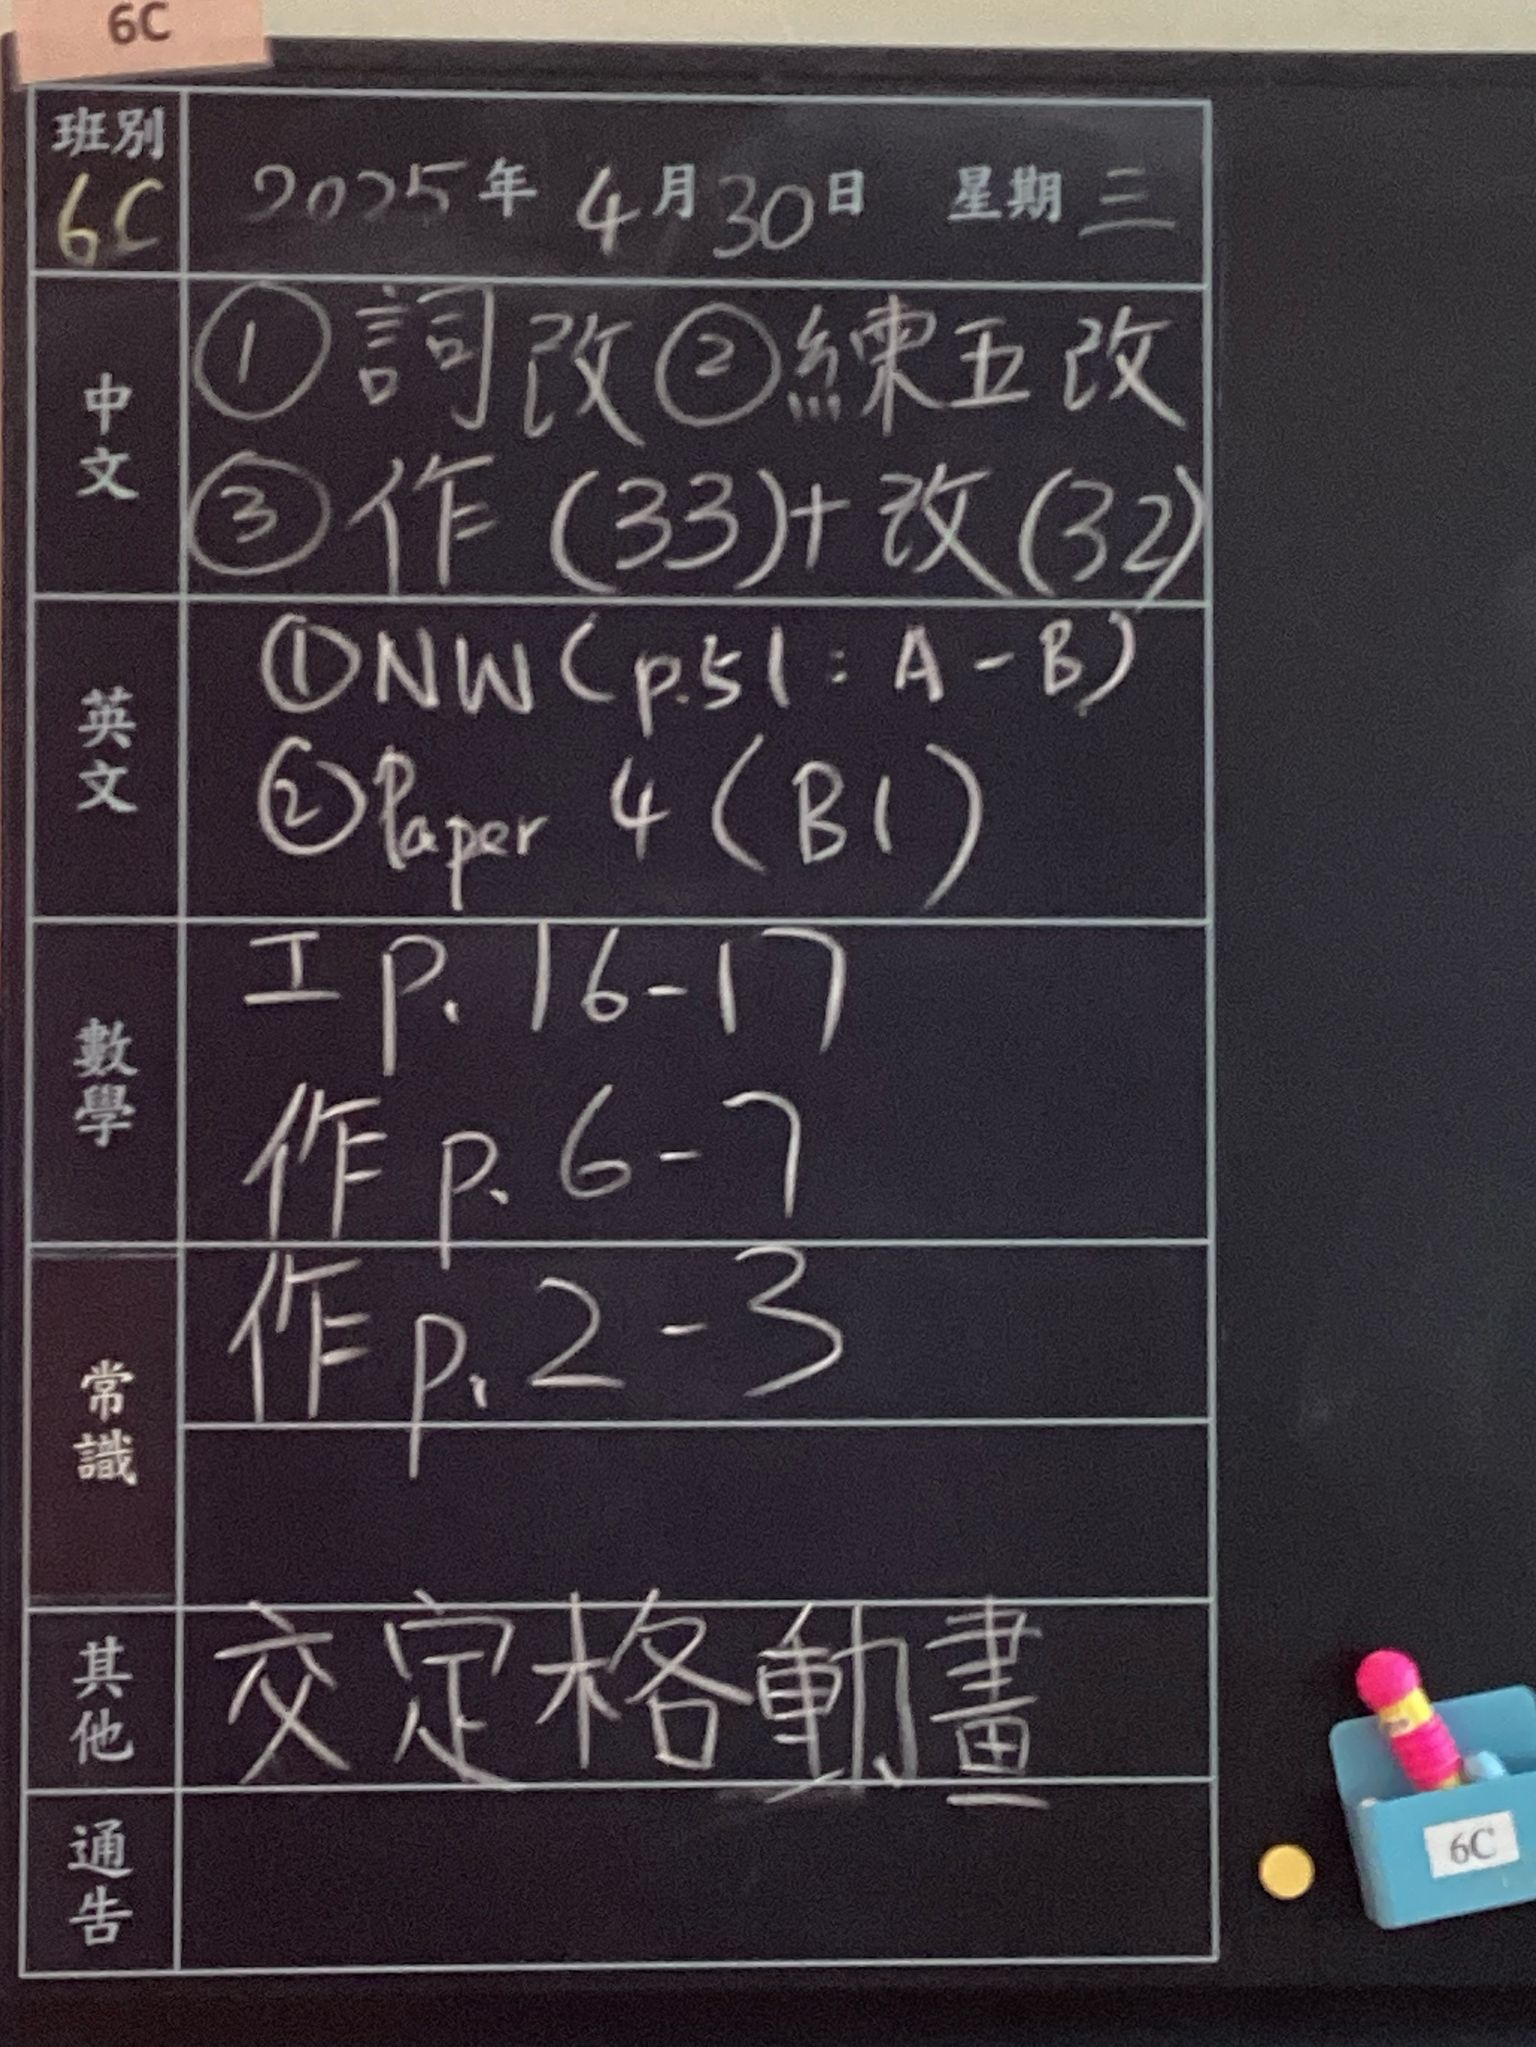 6C
班別
6C
2025年 4月30日 星期三
中文
① 詞改 ② 練五改
③ 作 (33)+ 改 (32)
英文
① NW (p.51 : A - B)
② Paper 4 (B1)
數學
工 p. 16-17
作 p. 6-7
常識
作 p. 2-3
其他
交定格動畫
通告
6C